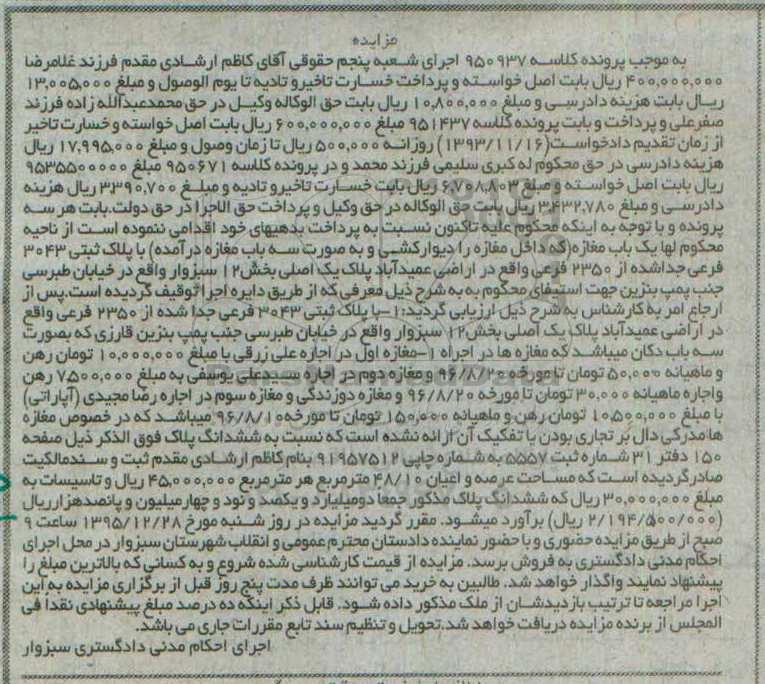 مزایده
به موجب پرونده کلاسه ۹۵۰۹۳۷ اجرای شعبه پنجم حقوقی آقای کاظم ارشادی مقدم فرزند غلامرضا
۴۰۰,۰۰۰,۰۰۰ ریال بابت اصل خواسته و پرداخت خسارت تاخیرو تادیه تا یوم الوصول و مبلغ ۱۳,۰۰۵,۰۰۰
ریال بابت هزینه دادرسی و مبلغ ۱۰,۸۰۰,۰۰۰ ریال بابت حق الوکاله وکیل در حق محمدعبدالله زاده فرزند
صفرعلی و پرداخت و بابت پرونده کلاسه ۹۵۱۴۳۷ مبلغ ۶۰۰,۰۰۰,۰۰۰ ریال بابت اصل خواسته و خسارت تاخیر
از زمان تقدیم دادخواست(۱۳۹۳/۱۱/۱۶) روزانه ۵۰۰,۰۰۰ ریال تا زمان وصول و مبلغ ۱۷,۹۹۵,۰۰۰ ریال
هزینه دادرسی در حق محکوم له کبری سلیمی فرزند محمد و در پرونده کلاسه ۹۵۰۶۷۱ مبلغ ۹۵۳۵۵۰۰۰۰۰
ریال بابت اصل خواسته و مبلغ ۶,۷۰۸,۸۰۳ ریال بابت خسارت تاخیرو تادیه و مبلغ ۳۳۹۰,۷۰۰ ریال هزینه
دادرسی و مبلغ ۳,۴۳۲,۷۸۰ ریال بابت حق الوکاله در حق وکیل و پرداخت حق الاجرا در حق دولت.بابت هر سه
پرونده و با توجه به اینکه محکوم علیه تاکنون نسبت به پرداخت بدهیهای خود اقدامی ننموده است از ناحیه
محکوم لها یک باب مغازه(که داخل مغازه را دیوارکشی و به صورت سه باب مغازه درآمده) با پلاک ثبتی ۳۰۴۳
فرعی جداشده از ۲۳۵۰ فرعی واقع در اراضی عمیدآباد پلاک یک اصلی بخش۱۲ سبزوار واقع در خیابان طبرسی
جنب پمپ بنزین جهت استیفای محکوم به به شرح ذیل معرفی که از طریق دایره اجرا توقیف گردیده است.پس از
ارجاع امر به کارشناس به شرح ذیل ارزیابی گردید:۱-با پلاک ثبتی ۳۰۴۳ فرعی جدا شده از ۲۳۵۰ فرعی واقع
در اراضی عمیدآباد پلاک یک اصلی بخش۱۲ سبزوار واقع در خیابان طبرسی جنب پمپ بنزین قارزی که بصورت
سه باب دکان میباشد که مغازه ها در اجراه ۱-مغازه اول در اجاره علی زرقی با مبلغ ۱۰,۰۰۰,۰۰۰ تومان رهن
و ماهیانه ۵۰,۰۰۰ تومان تا مورخه ۹۶/۷/۲۰ و مغازه دوم در اجاره سیدعلی یوسفی به مبلغ ۷,۵۰۰,۰۰۰ رهن
واجاره ماهیانه ۳۰,۰۰۰ تومان تا مورخه ۹۶/۸/۲۰ و مغازه دوزندگی و مغازه سوم در اجاره رضا مجیدی (آپاراتی)
با مبلغ ۱۰,۵۰۰,۰۰۰ تومان رهن و ماهیانه ۱۵۰,۰۰۰ تومان تا مورخه۹۶/۸/۱۰ میباشد که در خصوص مغازه
ها مدرکی دال بر تجاری بودن یا تفکیک آن ارائه نشده است که نسبت به ششدانگ پلاک فوق الذکر ذیل صفحه
۱۵۰ دفتر ۳۱ شماره ثبت ۵۵۵۷ به شماره چاپی ۹۱۹۵۷۵۱۲ بنام کاظم ارشادی مقدم ثبت و سندمالکیت
صادرگردیده است که مساحت عرصه و اعیان ۴۸/۱۰ مترمربع هر مترمربع ۴۵,۰۰۰,۰۰۰ ریال و تاسیسات به
مبلغ ۳۰,۰۰۰,۰۰۰ ریال که ششدانگ پلاک مذکور جمعا دومیلیارد و یکصد و نود و چهارمیلیون و پانصدهزارریال
(۲/۱۹۴/۵۰۰/۰۰۰ ریال) برآورد میشود. مقرر گردید مزایده در روز شنبه مورخ ۱۳۹۵/۱۲/۲۸ ساعت ۹
صبح از طریق مزایده حضوری و با حضور نماینده دادستان محترم عمومی و انقلاب شهرستان سبزوار در محل اجرای
احکام مدنی دادگستری به فروش برسد. مزایده از قیمت کارشناسی شده شروع و به کسانی که بالاترین مبلغ را
پیشنهاد نمایند واگذار خواهد شد. طالبین به خرید می توانند ظرف مدت پنج روز قبل از برگزاری مزایده به این
اجرا مراجعه تا ترتیب بازدیدشان از ملک مذکور داده شود. قابل ذکر اینکه ده درصد مبلغ پیشنهادی نقداً فی
المجلس از برنده مزایده دریافت خواهد شد.تحویل و تنظیم سند تابع مقررات جاری می باشد.
اجرای احکام مدنی دادگستری سبزوار